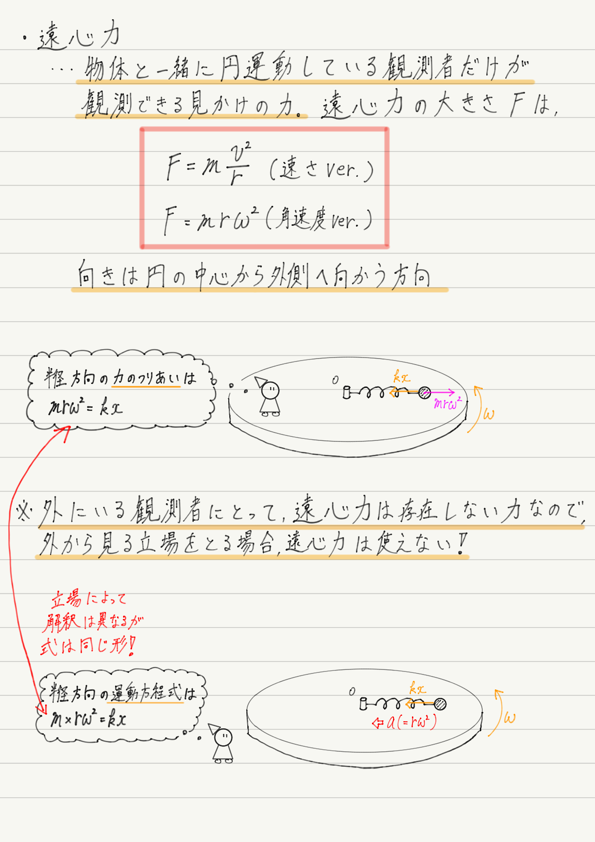 ・遠心力
… 物体と一緒に円運動している観測者だけが
観測できる見かけの力。遠心力の大きさFは,
F = m v²/r (速さver.)
F = mrω² (角速度ver.)
向きは円の中心から外側へ向かう方向
半径方向の力のつりあいは
mrω² = kx
O
kx
mrω²
ω
※ 外にいる観測者にとって,遠心力は存在しない力なので,
外から見る立場をとる場合,遠心力は使えない!
立場によって
解釈は異なるが
式は同じ形!
半径方向の運動方程式は
m×rω² = kx
O
kx
a(=rω²)
ω